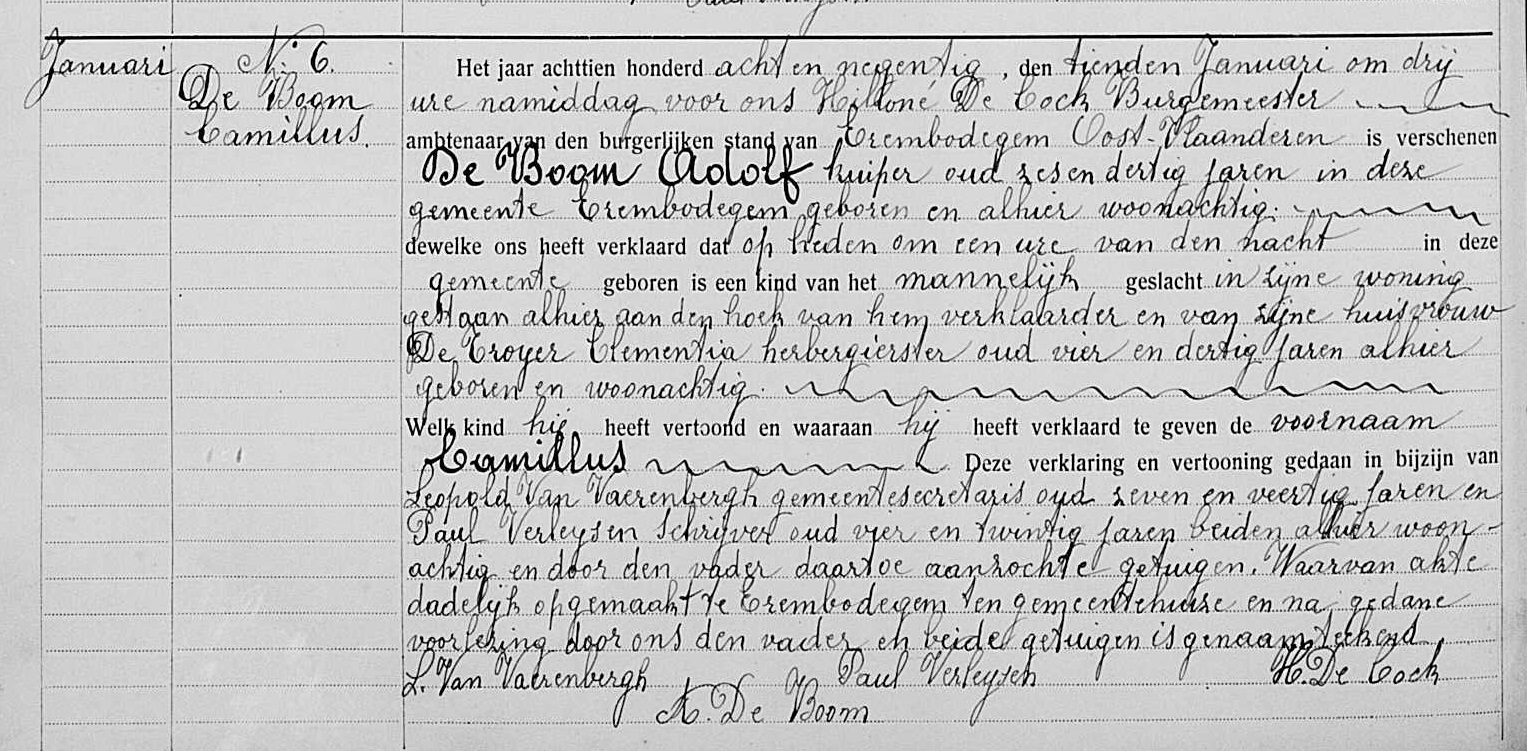 Januari
N.º 6.
De Boom
Camillus.
Het jaar achttien honderd acht en negentig, den tienden Januari om drij
ure namiddag voor ons Hilloné De Cock Burgemeester
ambtenaar van den burgerlijken stand van Erembodegem Oost-Vlaanderen is verschenen
De Boom Adolf kuiper oud zes en dertig jaren in deze
gemeente Erembodegem geboren en alhier woonachtig.
dewelke ons heeft verklaard dat op heden om een ure van den nacht in deze
gemeente geboren is een kind van het mannelijk geslacht in zijne woning
gestaan alhier aan den hoek van hem verklaarder en van zijne huisvrouw
De Troyer Clementia herbergierster oud vier en dertig jaren alhier
geboren en woonachtig.
Welk kind hij heeft vertoond en waaraan hij heeft verklaard te geven de voornaam
Camillus Deze verklaring en vertooning gedaan in bijzijn van
Leopold Van Vaerenbergh gemeentesecretaris oud zeven en veertig jaren en
Paul Verleysen Schrijver oud vier en twintig jaren beiden alhier woon-
achtig en door den vader daartoe aanzochte getuigen. Waarvan akte
dadelijk opgemaakt te Erembodegem ten gemeentehuize en na gedane
voorlezing door ons den vader en beide getuigen is genaamteekend
L. Van Vaerenbergh Paul Verleysen H. De Cock
A. De Boom